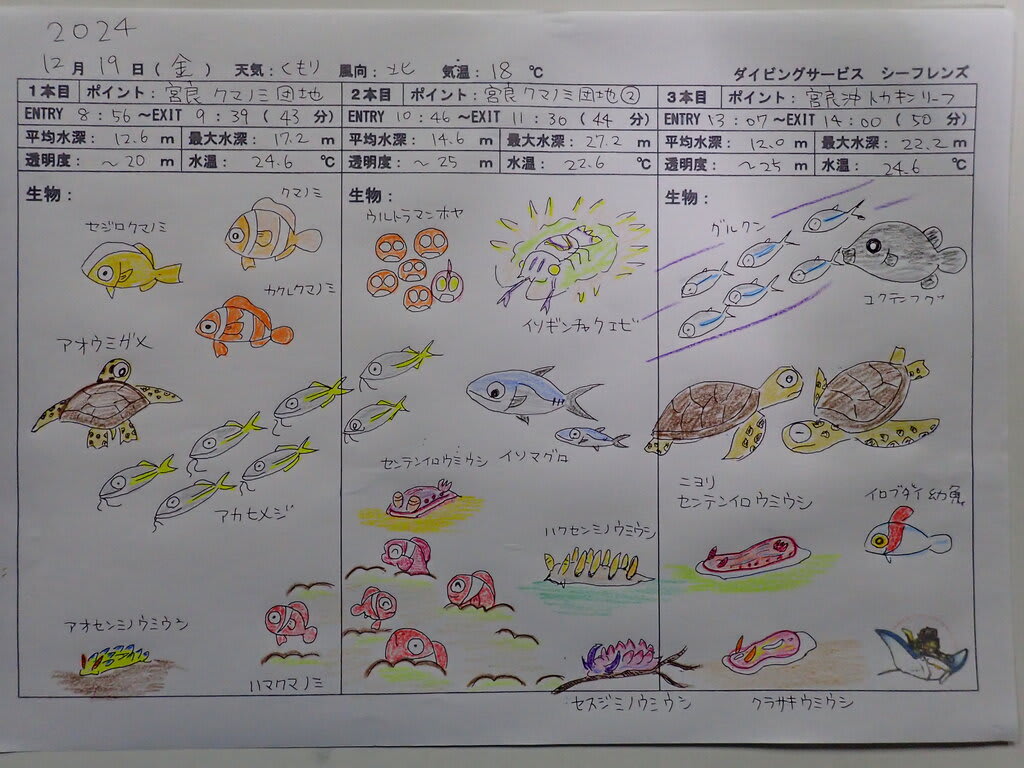 2024
12月 19日 (金) 天気：くもり 風向：北 気温：18 ℃
ダイビングサービス シーフレンズ
1本目 ポイント：宮良 クマノミ団地
ENTRY 8：56 ～EXIT 9：39 (43 分)
平均水深： 12.6 m 最大水深： 17.2 m
透明度： ～20 m 水温： 24.6 ℃
生物：
クマノミ
セジロクマノミ
カクレクマノミ
アオウミガメ
アカヒメジ
アオセンミノウミウシ
ハマクマノミ
2本目 ポイント：宮良クマノミ団地②
ENTRY 10：46 ～EXIT 11：30 (44 分)
平均水深： 14.6 m 最大水深： 27.2 m
透明度： ～25 m 水温： 22.6 ℃
生物：
ウルトラマンホヤ
イソギンチャクエビ
センテンイロウミウシ イソマグロ
ハクセンミノウミウシ
セスジミノウミウシ
3本目 ポイント：宮良沖トカキンリーフ
ENTRY 13：07 ～EXIT 14：00 (50 分)
平均水深： 12.0 m 最大水深： 22.2 m
透明度： ～25 m 水温： 24.6 ℃
生物：
グルクン
コクテンフグ
ニヨリ
センテンイロウミウシ
イロブダイ幼魚
クラサキウミウシ